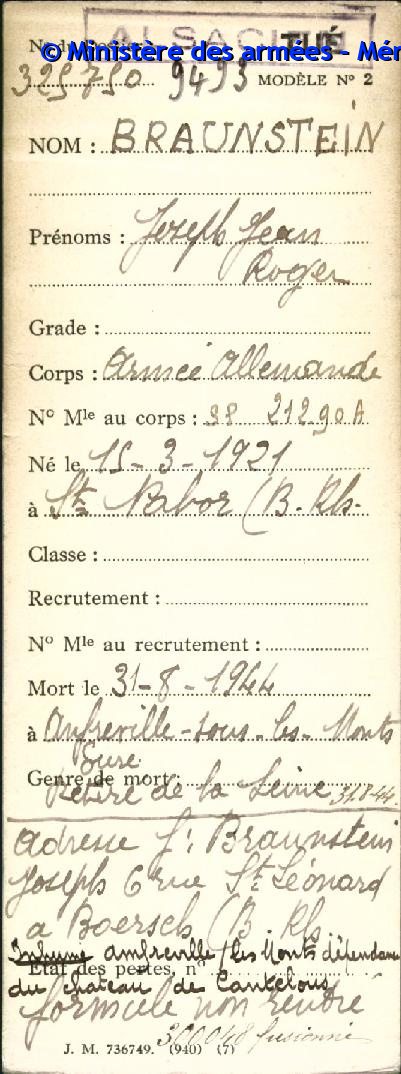 ALSACIEN
TUÉ
N° de
© Ministère des armées - Mém
325790 9493 MODÈLE N° 2
NOM : BRAUNSTEIN
Prénoms : Joseph Jean
Roger
Grade :
Corps : Armée Allemande
N° Mle au corps : 38 212.90A
Né le 15-3-1921
à St Nabor (B. Rh.
Classe :
Recrutement :
N° Mle au recrutement :
Mort le 31-8-1944
à Anfreville-sous-les-Monts
Eure
Genre de mort :
Retiré de la Seine 31.8.44
Adresse f: Braunstein
Joseph 6 rue St Léonard
a Boersch (B. Rh.
Inhumé ambreville/les Monts dépendance
État des pertes, n°
du château de Cantelous
formule non rentré
300048 fusionné
J. M. 736749. (940) (7)